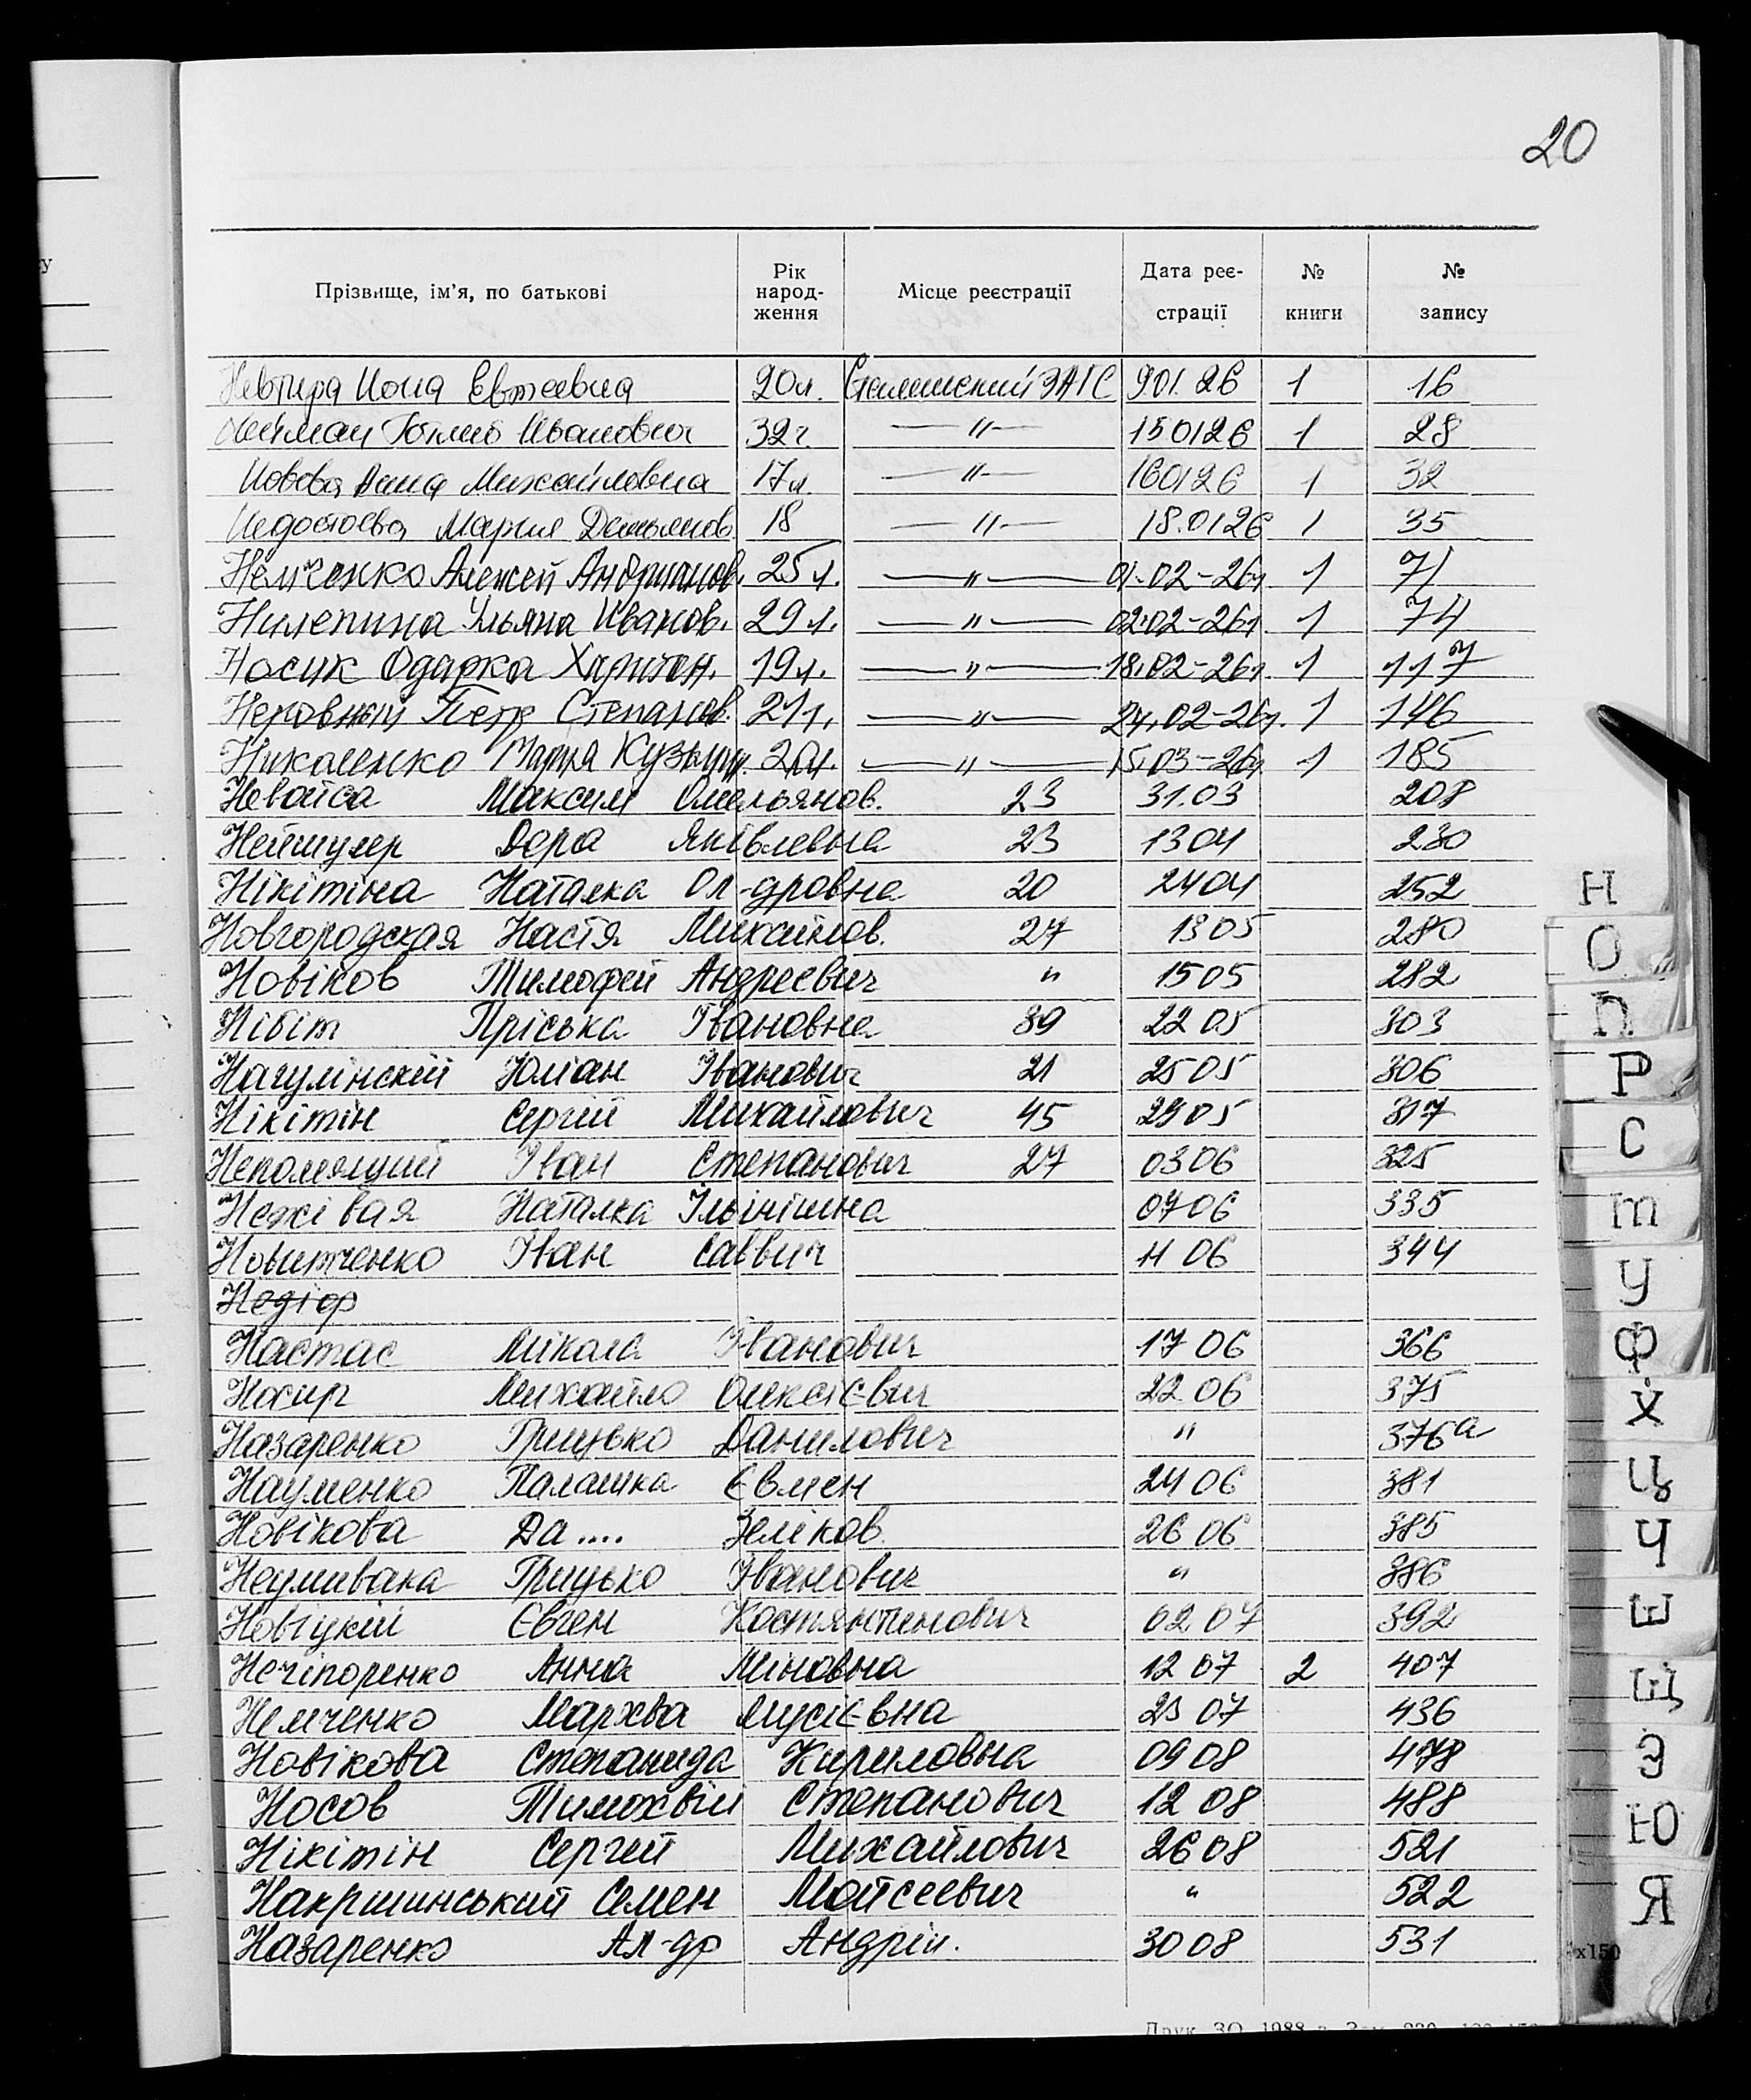 20
Прізвище, ім'я, по батькові Рік народ- ження Місце реєстрації Дата реє- страції № книги № запису
Иона 20л. ЗАГС 9.01.26 1 16
Иванович 32г. —"— 150126 1 28
Анна Михайловна 17л. —"— 160126 1 32
Недостоева Мария Демьянов. 18 —"— 18.0126 1 35
Немченко Алексей Андрианов. 25л. —"— 01-02-26г. 1 71
Нилепина Ульяна Иванов. 29л. —"— 02.02-26г. 1 74
Носик Одарка Харитон. 19л. —"— 18.02-26г. 1 117
Неровный Петр Степанов. 21л. —"— 24.02-26г. 1 146
Николенко Кузьмин. 20л. —"— 15.03-26г. 1 185
Невайса Максим Омельянов. 23 31.03 208
Неймулер Дора Яківлевна 23 1304 230
Нікітіна Наталка Ол-дровна 20 2404 252
Новгородская Настя Михайлов. 27 1305 280
Новіков Тимофей Андреевич " 1505 282
Нібіт Пріська Івановна 39 2205 303
Нагулінскій Юліан Іванович 21 2505 306
Нікітін Сергій Михайлович 45 2905 317
Непомящий Іван Степанович 27 0306 325
Нежівая Наталка Ільінішна 0706 335
Новитченко Іван Саввич 11 06 344
Недіор
Настас Мікола Іванович 17 06 366
Носир Михайло Олексієвич 22 06 375
Назаренко Грицько Данилович " 376а
Науменко Палашка Євмен 24 06 381
Новікова Да.... Зеліков. 26 06 385
Неумивака Грицько Іванович " 386
Новіцкій Євген Костянтинович 02 07 392
Нечіпоренко Анна Міновна 12 07 2 407
Немченко Мархва Мусієвна 23 07 436
Новікова Степанида Кириловна 09 08 478
Носов Тимохвій Степанович 12 08 488
Нікітін Сергей Михайлович 26 08 521
Накришинський Семен Мойсеевич " 522
Назаренко Ал-др Андрій. 30 08 531
Н
О
П
Р
С
Т
У
Ф
Х
Ц
Ч
Ш
Щ
Э
Ю
Я
х150